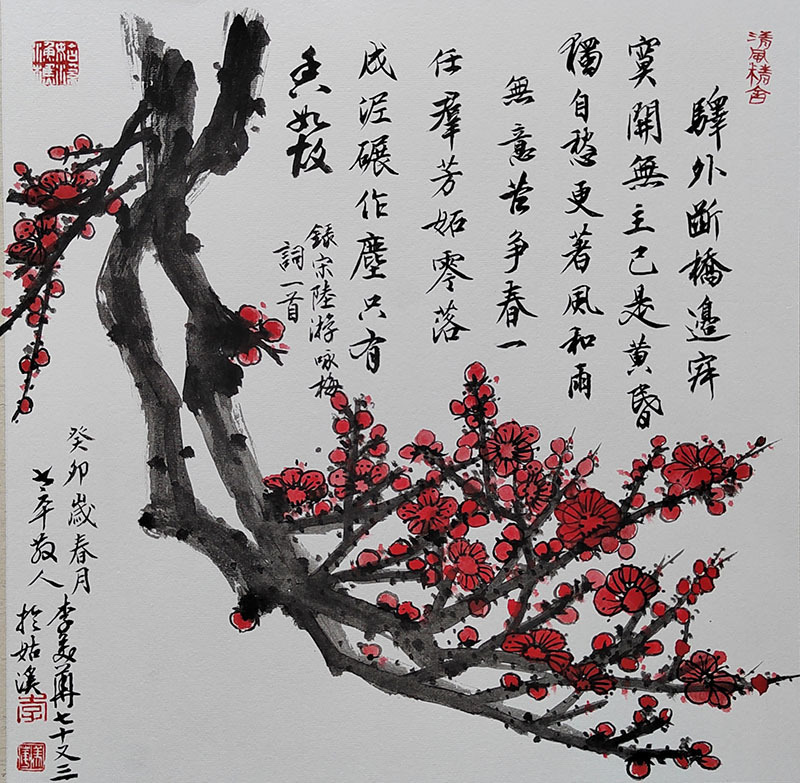 清風精舍
驛外斷橋邊寂
寞開無主已是黃昏
獨自愁更著風和雨
無意苦争春一
任羣芳妬零落
成泥碾作塵只有
香如故
錄宗陸游咏梅
詞一首
姑溪漁樵
癸卯歲春月
李美尊七十又三
散人
於姑溪
李